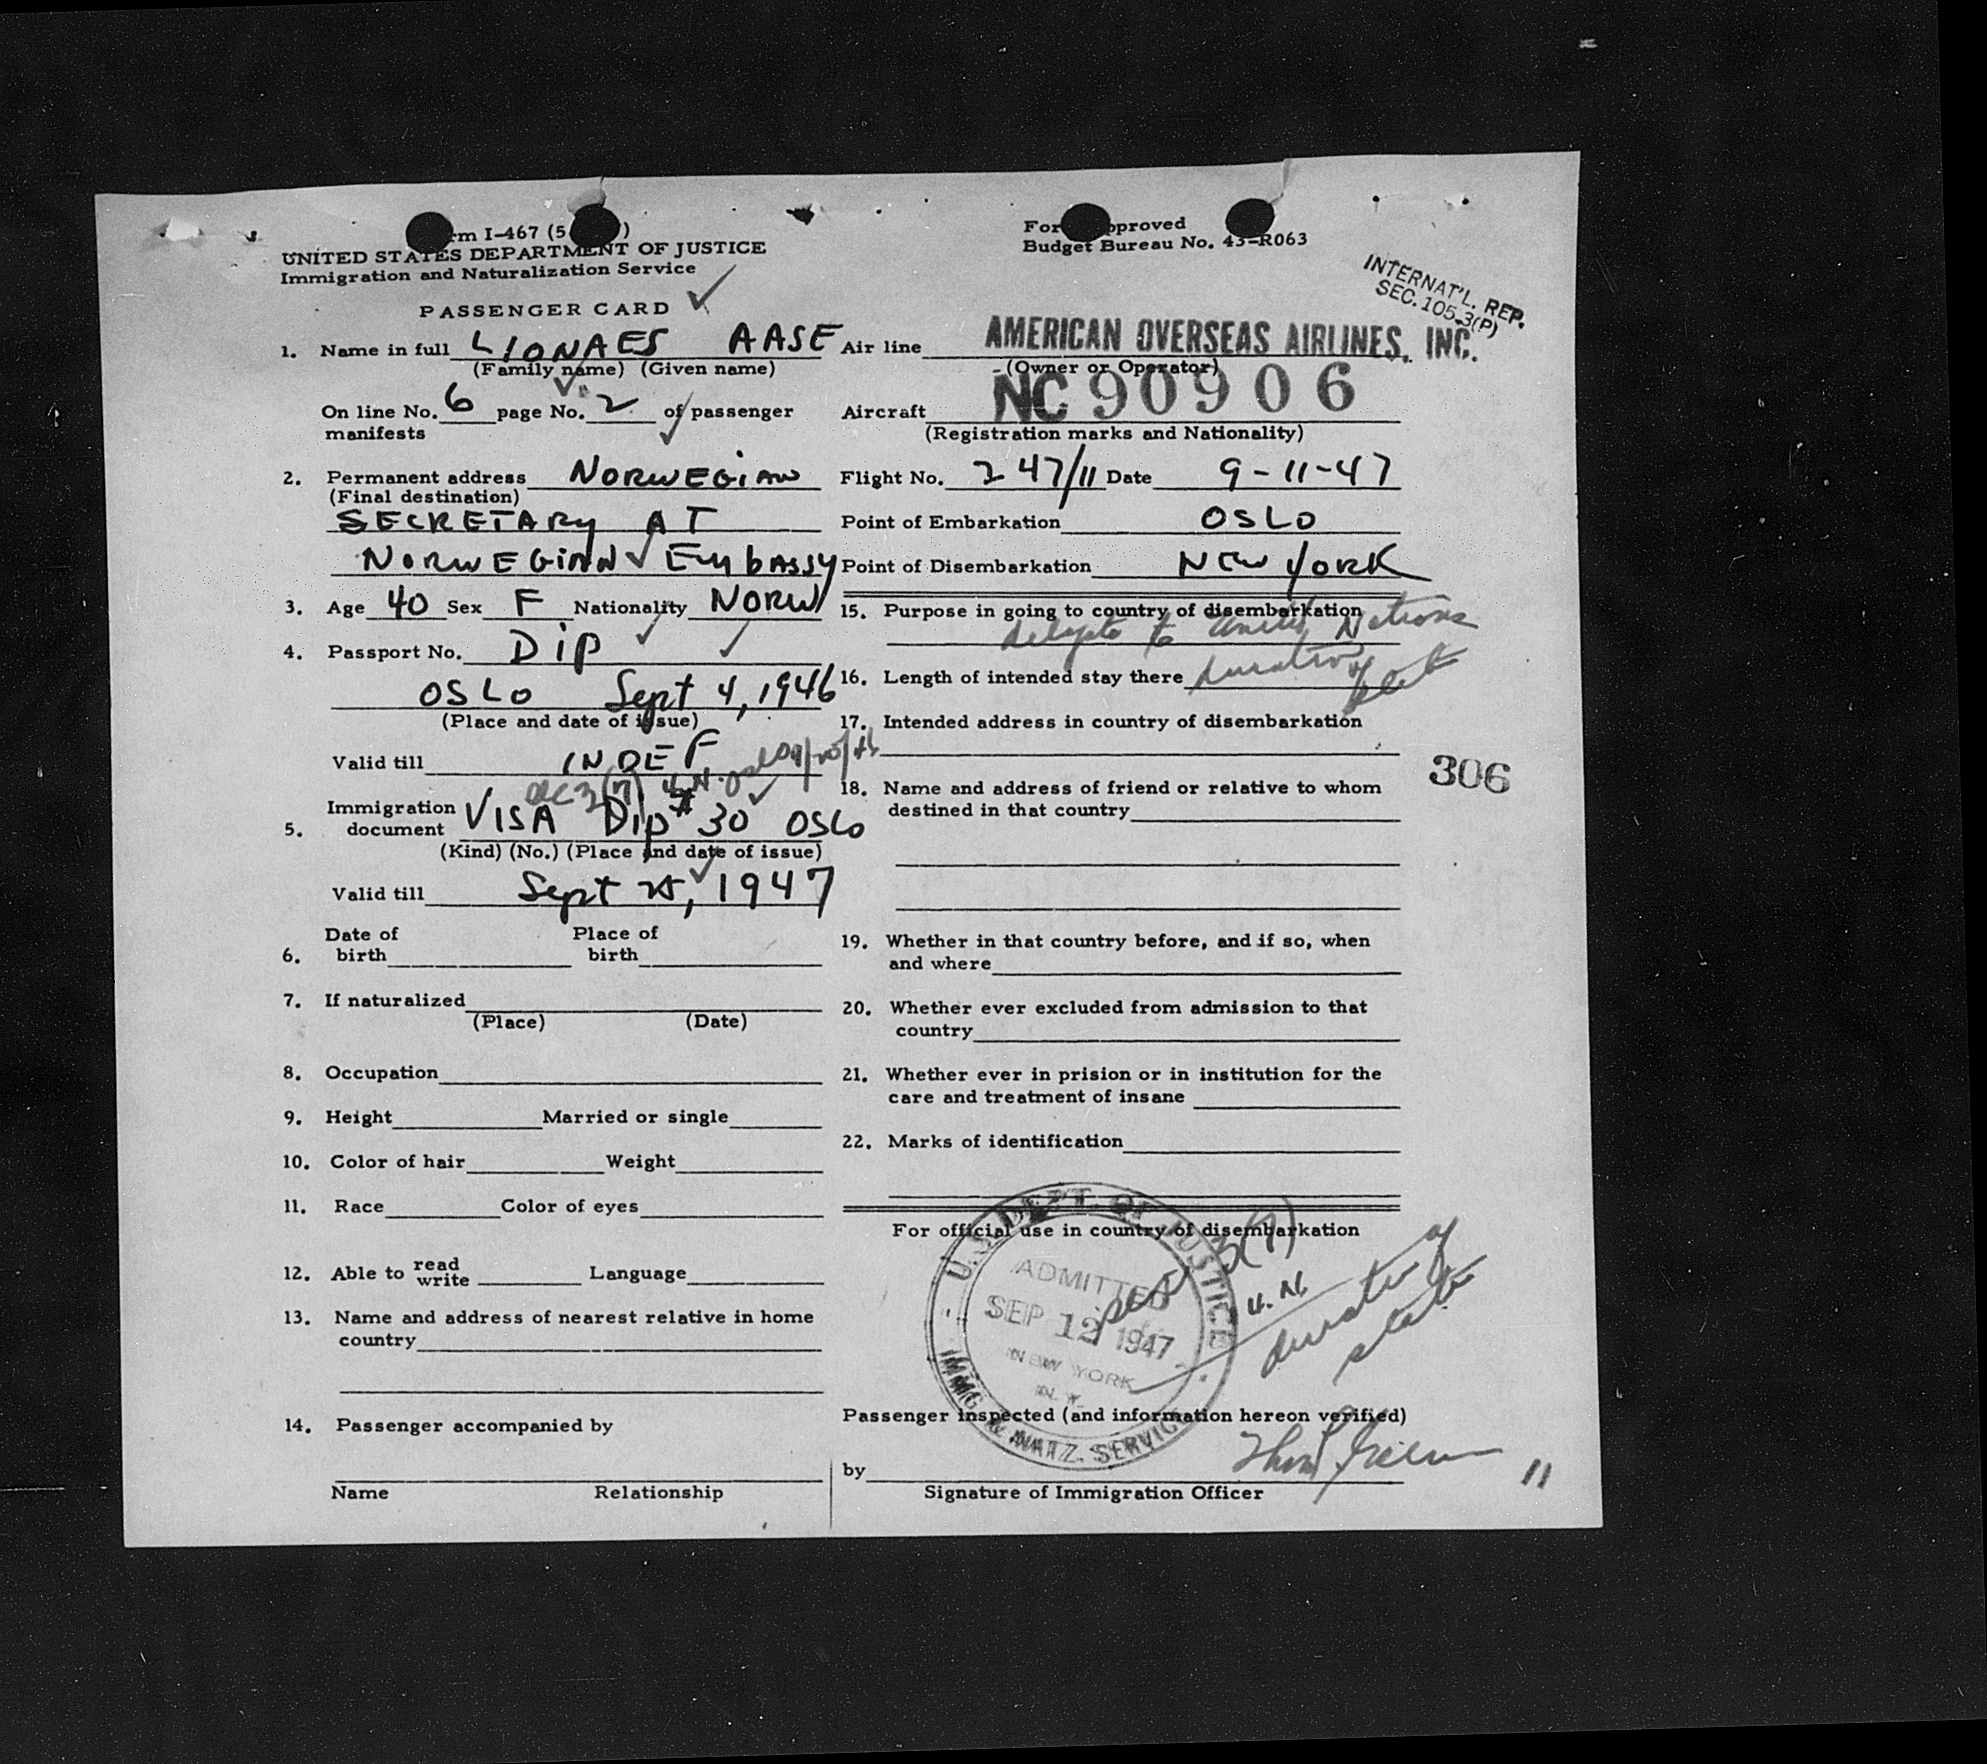 rm I-467 (5 )
UNITED STATES DEPARTMENT OF JUSTICE
Immigration and Naturalization Service
PASSENGER CARD
For pproved
Budget Bureau No. 43-R063
INTERNAT'L. REP.
SEC. 105.3(P)
1. Name in full LIONAES AASE
(Family name) (Given name)
On line No. 6 page No. 2 of passenger
manifests
2. Permanent address NORWEGIAN
(Final destination)
SECRETARY AT
NORWEGIAN EMBASSY
3. Age 40 Sex F Nationality NORW
4. Passport No. Dip
OSLO Sept 4, 1946
(Place and date of issue)
Valid till INDEF
Sec 3(7) U.N. Oslo
Immigration
5. document VISA Dip # 30 OSLO
(Kind) (No.) (Place and date of issue)
Valid till Sept 25, 1947
Date of Place of
6. birth birth
7. If naturalized
(Place) (Date)
8. Occupation
9. Height Married or single
10. Color of hair Weight
11. Race Color of eyes
12. Able to read
write Language
13. Name and address of nearest relative in home
country
14. Passenger accompanied by
Name Relationship
Air line AMERICAN OVERSEAS AIRLINES, INC.
(Owner or Operator)
Aircraft NC 90906
(Registration marks and Nationality)
Flight No. 247/11 Date 9-11-47
Point of Embarkation OSLO
Point of Disembarkation NEW YORK
15. Purpose in going to country of disembarkation
delegate to United Nations
16. Length of intended stay there duration of
status
17. Intended address in country of disembarkation
306
18. Name and address of friend or relative to whom
destined in that country
19. Whether in that country before, and if so, when
and where
20. Whether ever excluded from admission to that
country
21. Whether ever in prision or in institution for the
care and treatment of insane
22. Marks of identification
For official use in country of disembarkation
U.S. DEPT. OF JUSTICE
ADMITTED
SEP 12 1947
NEW YORK
N.Y.
IMMG & NATZ. SERVICE
Sec 3(7)
U.N.
duration of
status
Passenger inspected (and information hereon verified)
by
Signature of Immigration Officer
11